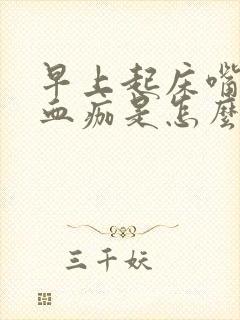 早上起床嘴
血痂是怎麼
三千妖